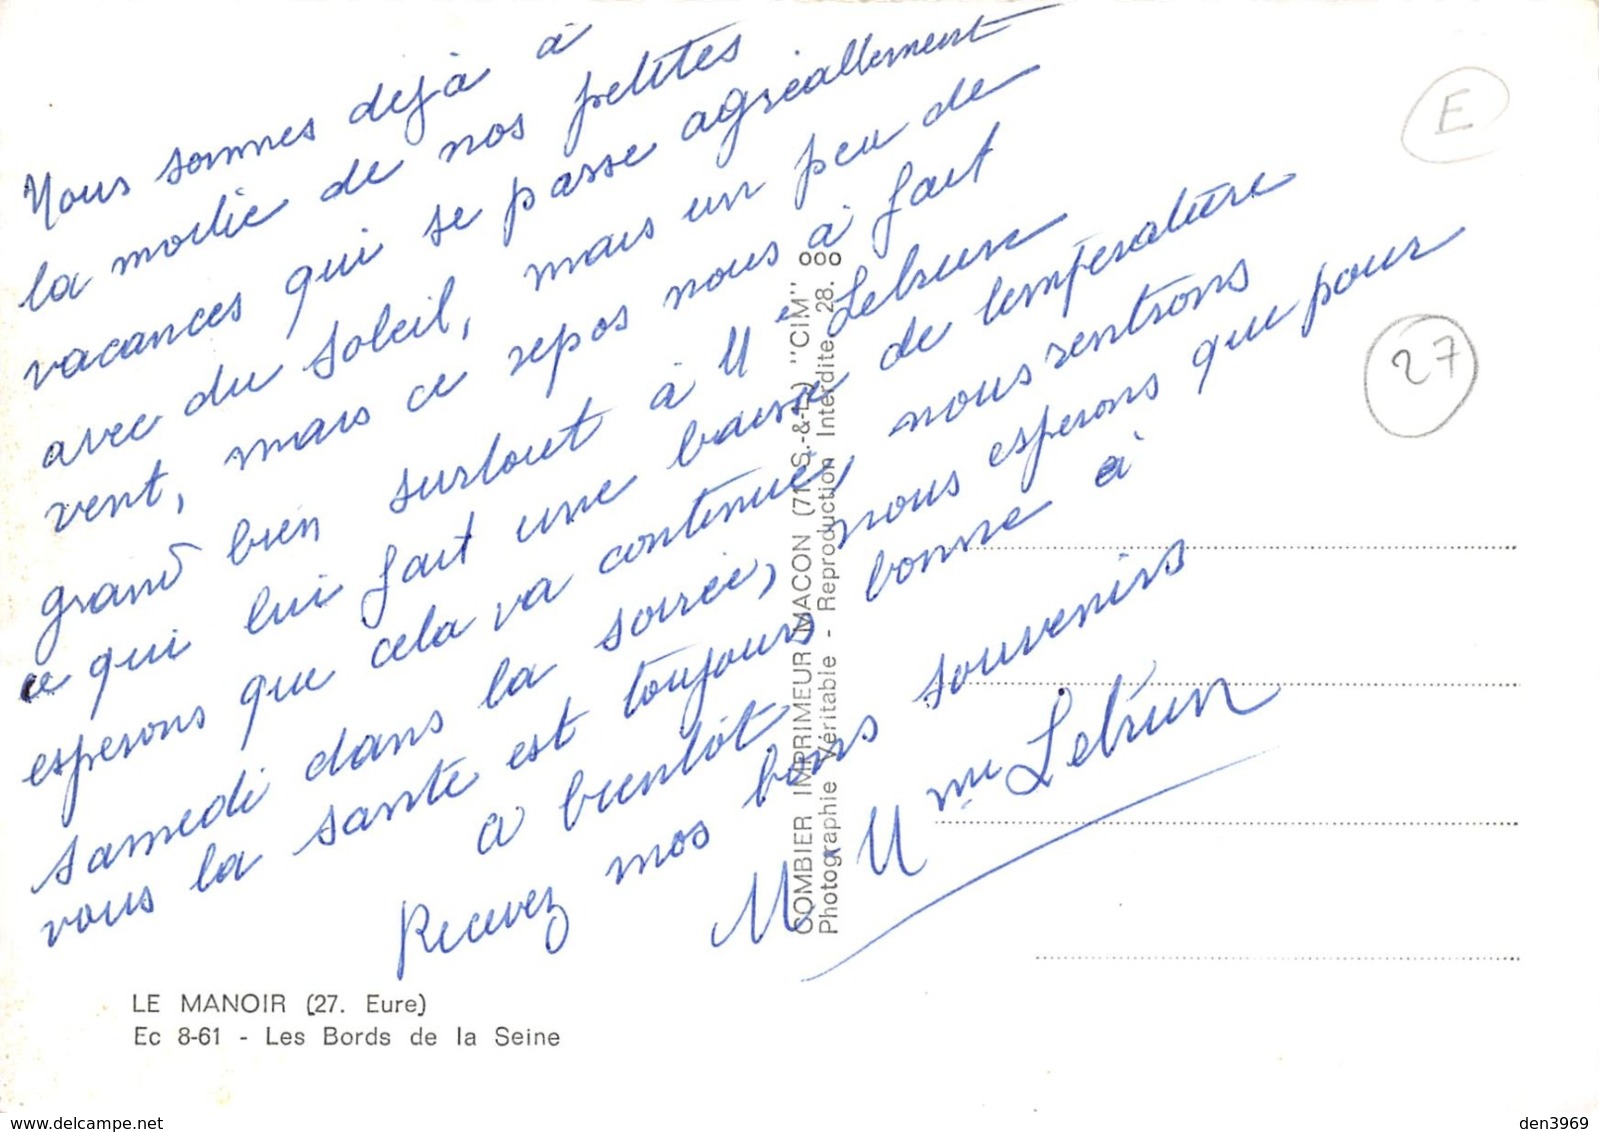 Nous sommes dejà à
la moitie de nos petites
vacances qui se passe agréallement
avec du soleil, mais un peu de
vent, mais ce repos nous à fait
grand bien surtout à Mr Lebrun
ce qui lui fait une baisse de température
esperons que cela va continué, nous rentrons
samedi dans la soirée, nous esperons que pour
vous la santé est toujours bonne à
a bientôt
Recevez mos bons souvenirs
M. Mme Lebrun
E
27
COMBIER IMPRIMEUR MACON (71 S.-&-L.) "CIM"
Photographie Véritable - Reproduction Interdite 28.
LE MANOIR (27. Eure)
Ec 8-61 - Les Bords de la Seine
www.delcampe.net
den3969